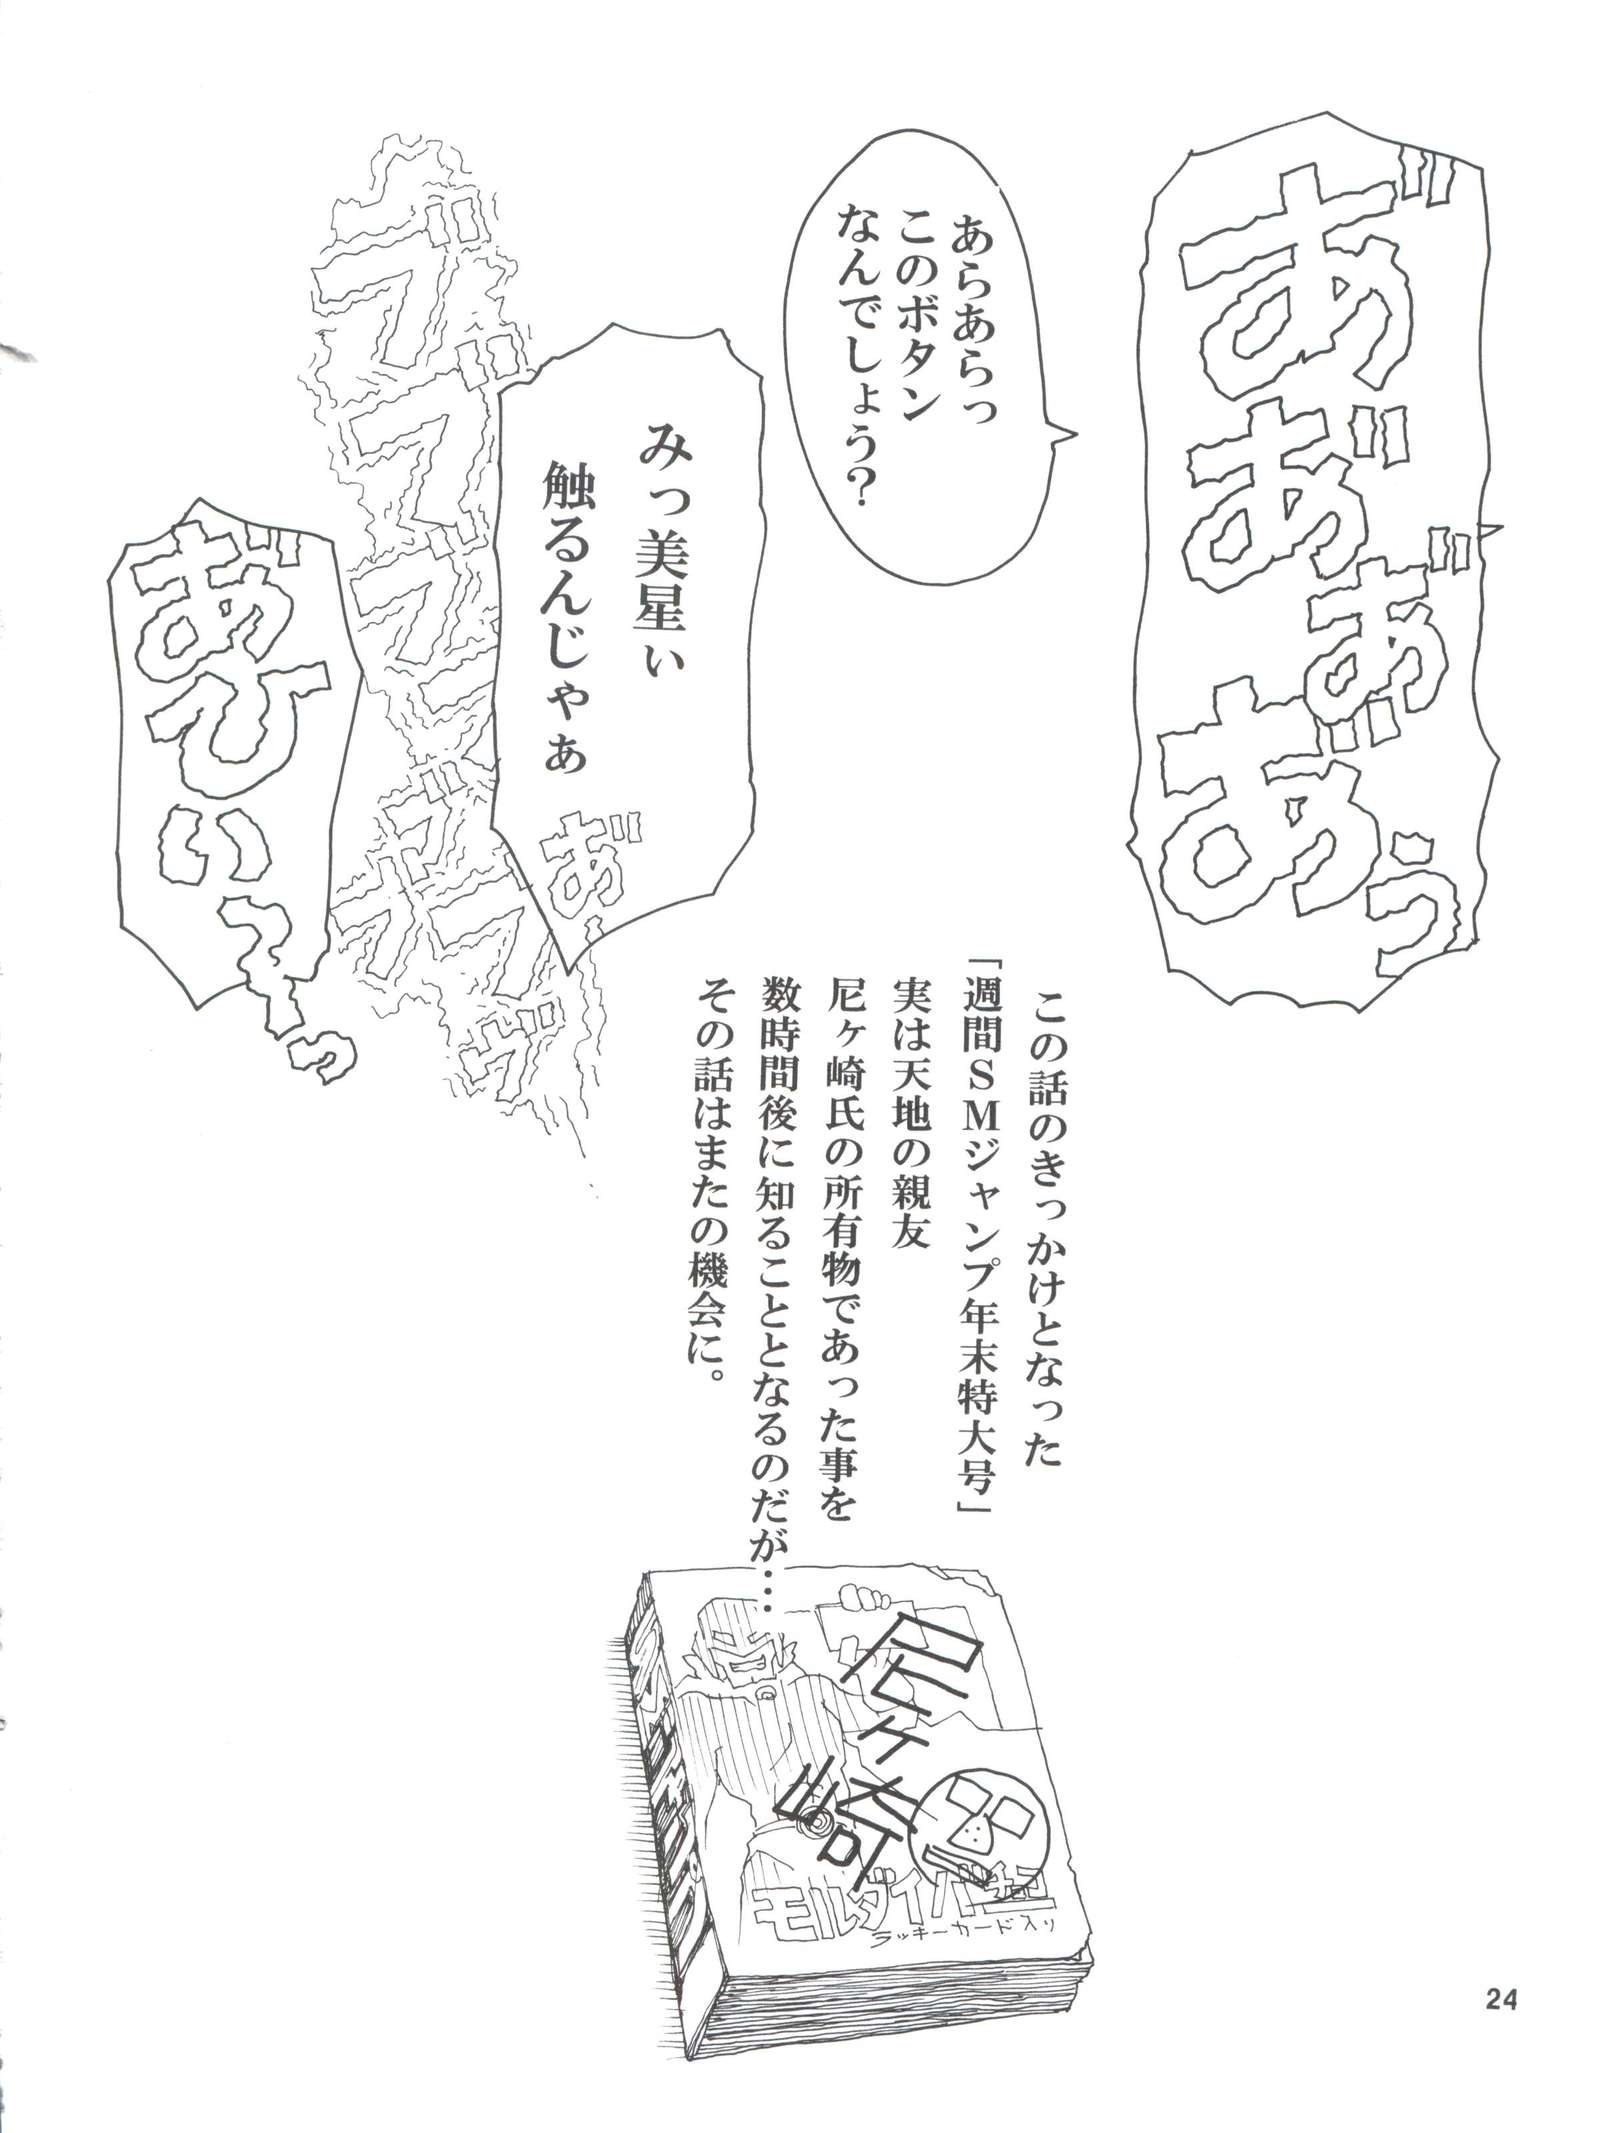 あ゛あ゛あ゛あ゛ぅ
あらあらっ
このボタン
なんでしょう?
みっ美星ぃ
触るんじゃぁ
あ゛ー
あ゛ひいっーっ
この話のきっかけとなった
「週間SMジャンプ年末特大号」
実は天地の親友
尼ヶ崎氏の所有物であった事を
数時間後に知ることとなるのだが…
その話はまたの機会に。
尼ヶ崎
モルダイバチョコ
ラッキーカード入り
24